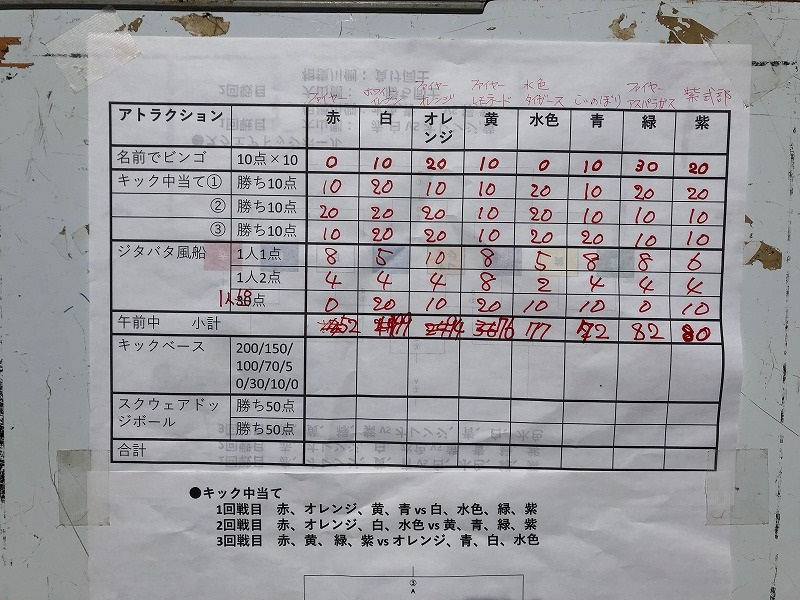 ファイヤー ホワイト ファイヤーオレンジ ファイヤーレモネード 水色 こいのぼり ファイヤーアスパラガス 紫式部
アトラクション 赤 白 オレンジ 黄 水色 青 緑 紫
名前でビンゴ 10点×10 0 10 20 10 0 10 30 20
キック中当て① 勝ち10点 10 20 10 10 20 10 20 20
② 勝ち10点 20 20 20 10 20 10 10 10
③ 勝ち10点 10 20 20 10 20 20 10 10
ジタバタ風船 1人1点 8 5 10 8 5 8 8 6
1人2点 4 4 4 8 2 4 4 4
点 0 20 10 20 10 10 0 10
午前中 小計 52 99 94 76 77 72 82 80
キックベース 200/150/
100/70/5
0/30/10/0
スクウェアドッ 勝ち50点
ジボール 勝ち50点
合計
●キック中当て
1回戦目 赤、オレンジ、黄、青 vs 白、水色、緑、紫
2回戦目 赤、オレンジ、白、水色 vs 黄、青、緑、紫
3回戦目 赤、黄、緑、紫 vs オレンジ、青、白、水色
③